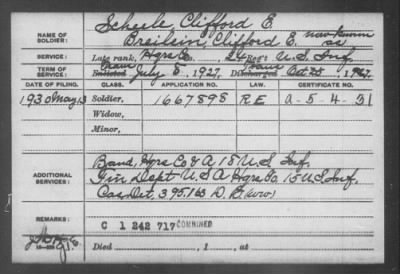 NAME OF SOLDIER: Scheele Clifford E.
Breilein, Clifford E. now known as
SERVICE: Late rank, Hqrs Co. 24 Reg't U.S. Inf.
TERM OF SERVICE: Enlisted July 8, 1927, Discharged Oct 25, 1927.
DATE OF FILING. CLASS. APPLICATION NO. LAW. CERTIFICATE NO.
1930 May 13 Soldier, 1667898 RE a-5-4-31
Widow,
Minor,
ADDITIONAL SERVICES: Band, Hqrs Co & A 18 U.S. Inf.
Fin Dept U.S.A. Hqrs Co. 15 U.S. Inf.
Cas Det, 395163 D.B. (WW)
REMARKS: C 1 242 717 COMBINED
Died , 1 , at